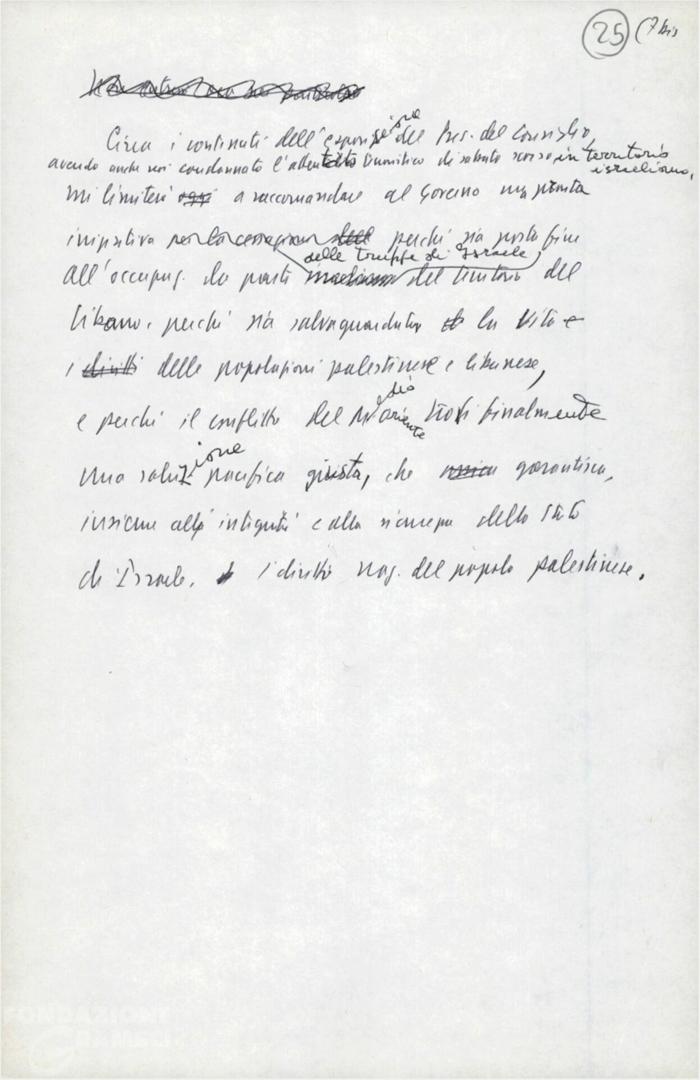 25 (7 bis
Circa i contenuti dell'esposizione del Pres. del Consiglio,
avendo anche noi condannato l'attentato terroristico di sabato scorso in territorio
israeliano,
mi limiterò oggi a raccomandare al Governo una pronta
iniziativa perché sia posta fine
delle truppe di Israele
all'occupaz. da parte del territorio del
Libano, perché sia salvaguardata la vita e
i diritti delle popolazioni palestinese e libanese,
e perché il conflitto del Medio Oriente trovi finalmente
una soluzione pacifica giusta, che garantisca,
insieme all' integrità e alla sicurezza dello Stato
di Israele, i diritti naz. del popolo palestinese.
FONDAZIONE